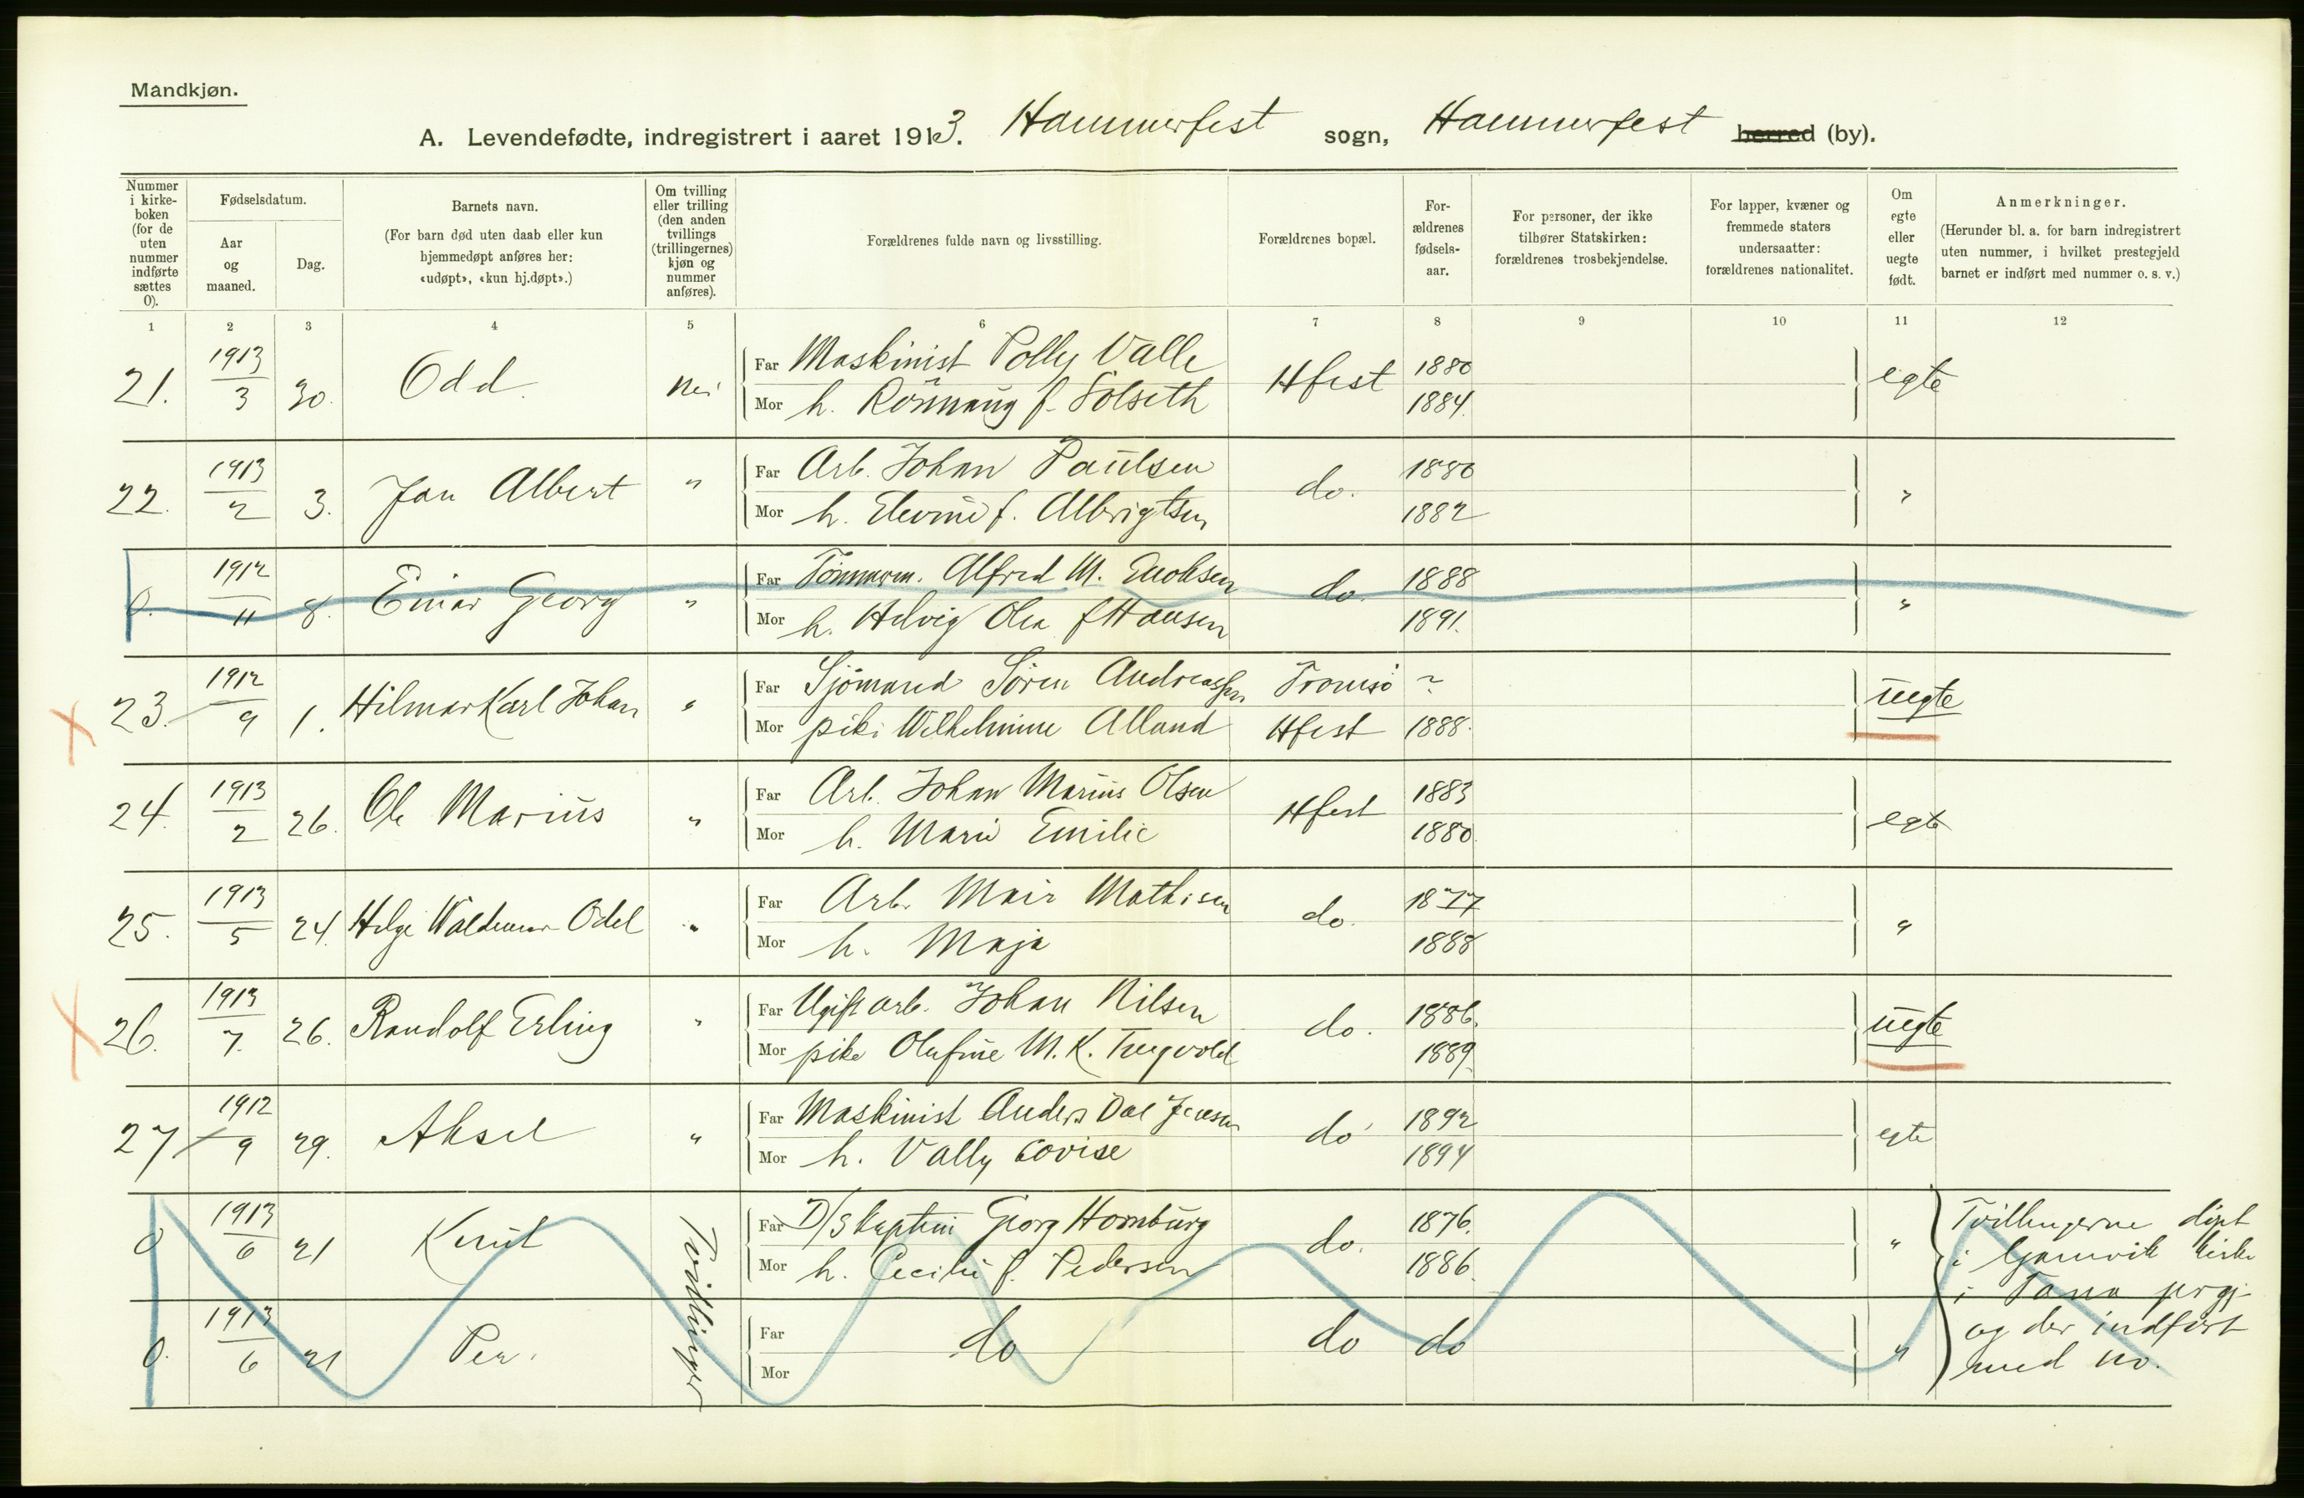 Mandkjøn.
A. Levendefødte, indregistrert i aaret 1913. Hammerfest sogn, Hammerfest herred (by).
Nummer i kirke-boken (for de uten nummer indførte sættes 0).
Fødselsdatum.
Aar og maaned.
Dag.
Barnets navn.
(For barn død uten daab eller kun hjemmedøpt anføres her: «udøpt», «kun hj.døpt».)
Om tvilling eller trilling (den anden tvillings (trillingernes) kjøn og nummer anføres).
Forældrenes fulde navn og livsstilling.
Forældrenes bopæl.
For-ældrenes fødsels-aar.
For personer, der ikke tilhører Statskirken: forældrenes trosbekjendelse.
For lapper, kvæner og fremmede staters undersaatter: forældrenes nationalitet.
Om egte eller uegte født.
Anmerkninger.
(Herunder bl. a. for barn indregistrert uten nummer, i hvilket prestegjeld barnet er indført med nummer o. s. v.)
1 2 3 4 5 6 7 8 9 10 11 12
21. 1913/3 30. Odd. nei Far Maskinist Polly Valle Hfest 1880 egte
Mor h. Rönnaug f. Solseth 1884.
22. 1913/2 3. Jan Albert " Far Arb. Johan Paulsen do. 1880 "
Mor h. f. Albrigtsen 1882
0. 1912/11 8. Einar Georg " Far Tømmerm. Alfred M. Enoksen do. 1888 "
Mor h. Helvig Olea f Hansen 1891.
23. 1912/9 1. Hilmar Karl Johan " Far Sjömand Sören Andreassen Tromsö ? uegte
Mor pike Wilhelmine Alland Hfest 1888.
24. 1913/2 26. Ole Marius " Far Arb. Johan Marius Olsen Hfest 1883 egte
Mor h. Marie Emilie 1880.
25. 1913/5 24. Helge Waldemar Odel " Far Arb. Mathisen do. 1877 "
Mor h. Maja 1888
26. 1913/7. 26. Randolf Erling " Far Ugift arb. Johan Nilsen do. 1886. uegte
Mor pike Olufine M. K. Trygvold 1889.
27 1912/9 29. Aksel " Far Maskinist Anders Dal Jensen do 1892 egte
Mor h. Vally Lovise 1894
0 1913/6 21 Knut Tvillinger Far D/S kaptein Georg Hornburg do. 1876. " Tvillingerne döpt
Mor h. Cecilie f. Pedersen 1886. i Gamvik kirke
0. 1913/6 21 Per. Far do do do " i Tana prgj.
Mor og der indført
med no.